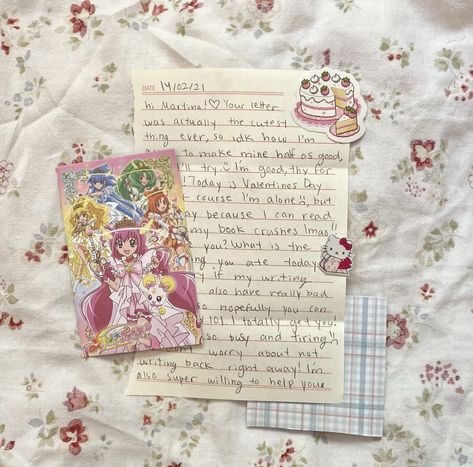 DATE 14/02/21
hi Martina!♡ Your letter
was actually the cutest
thing ever, so idk how I'm
to make mine half as good,
I'll try. I'm good, thy for
Today is Valentines Day
course I'm alone, but
because I can read
my book crushes lmao
you? What is the
you ate today
if my writing
also have really bad
so hopefully you can
lol I totally get you
so busy and tiring
worry about not
writing back right away! Im
also super willing to help your